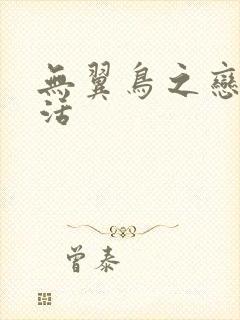 無翼鳥之戀
活
曾泰